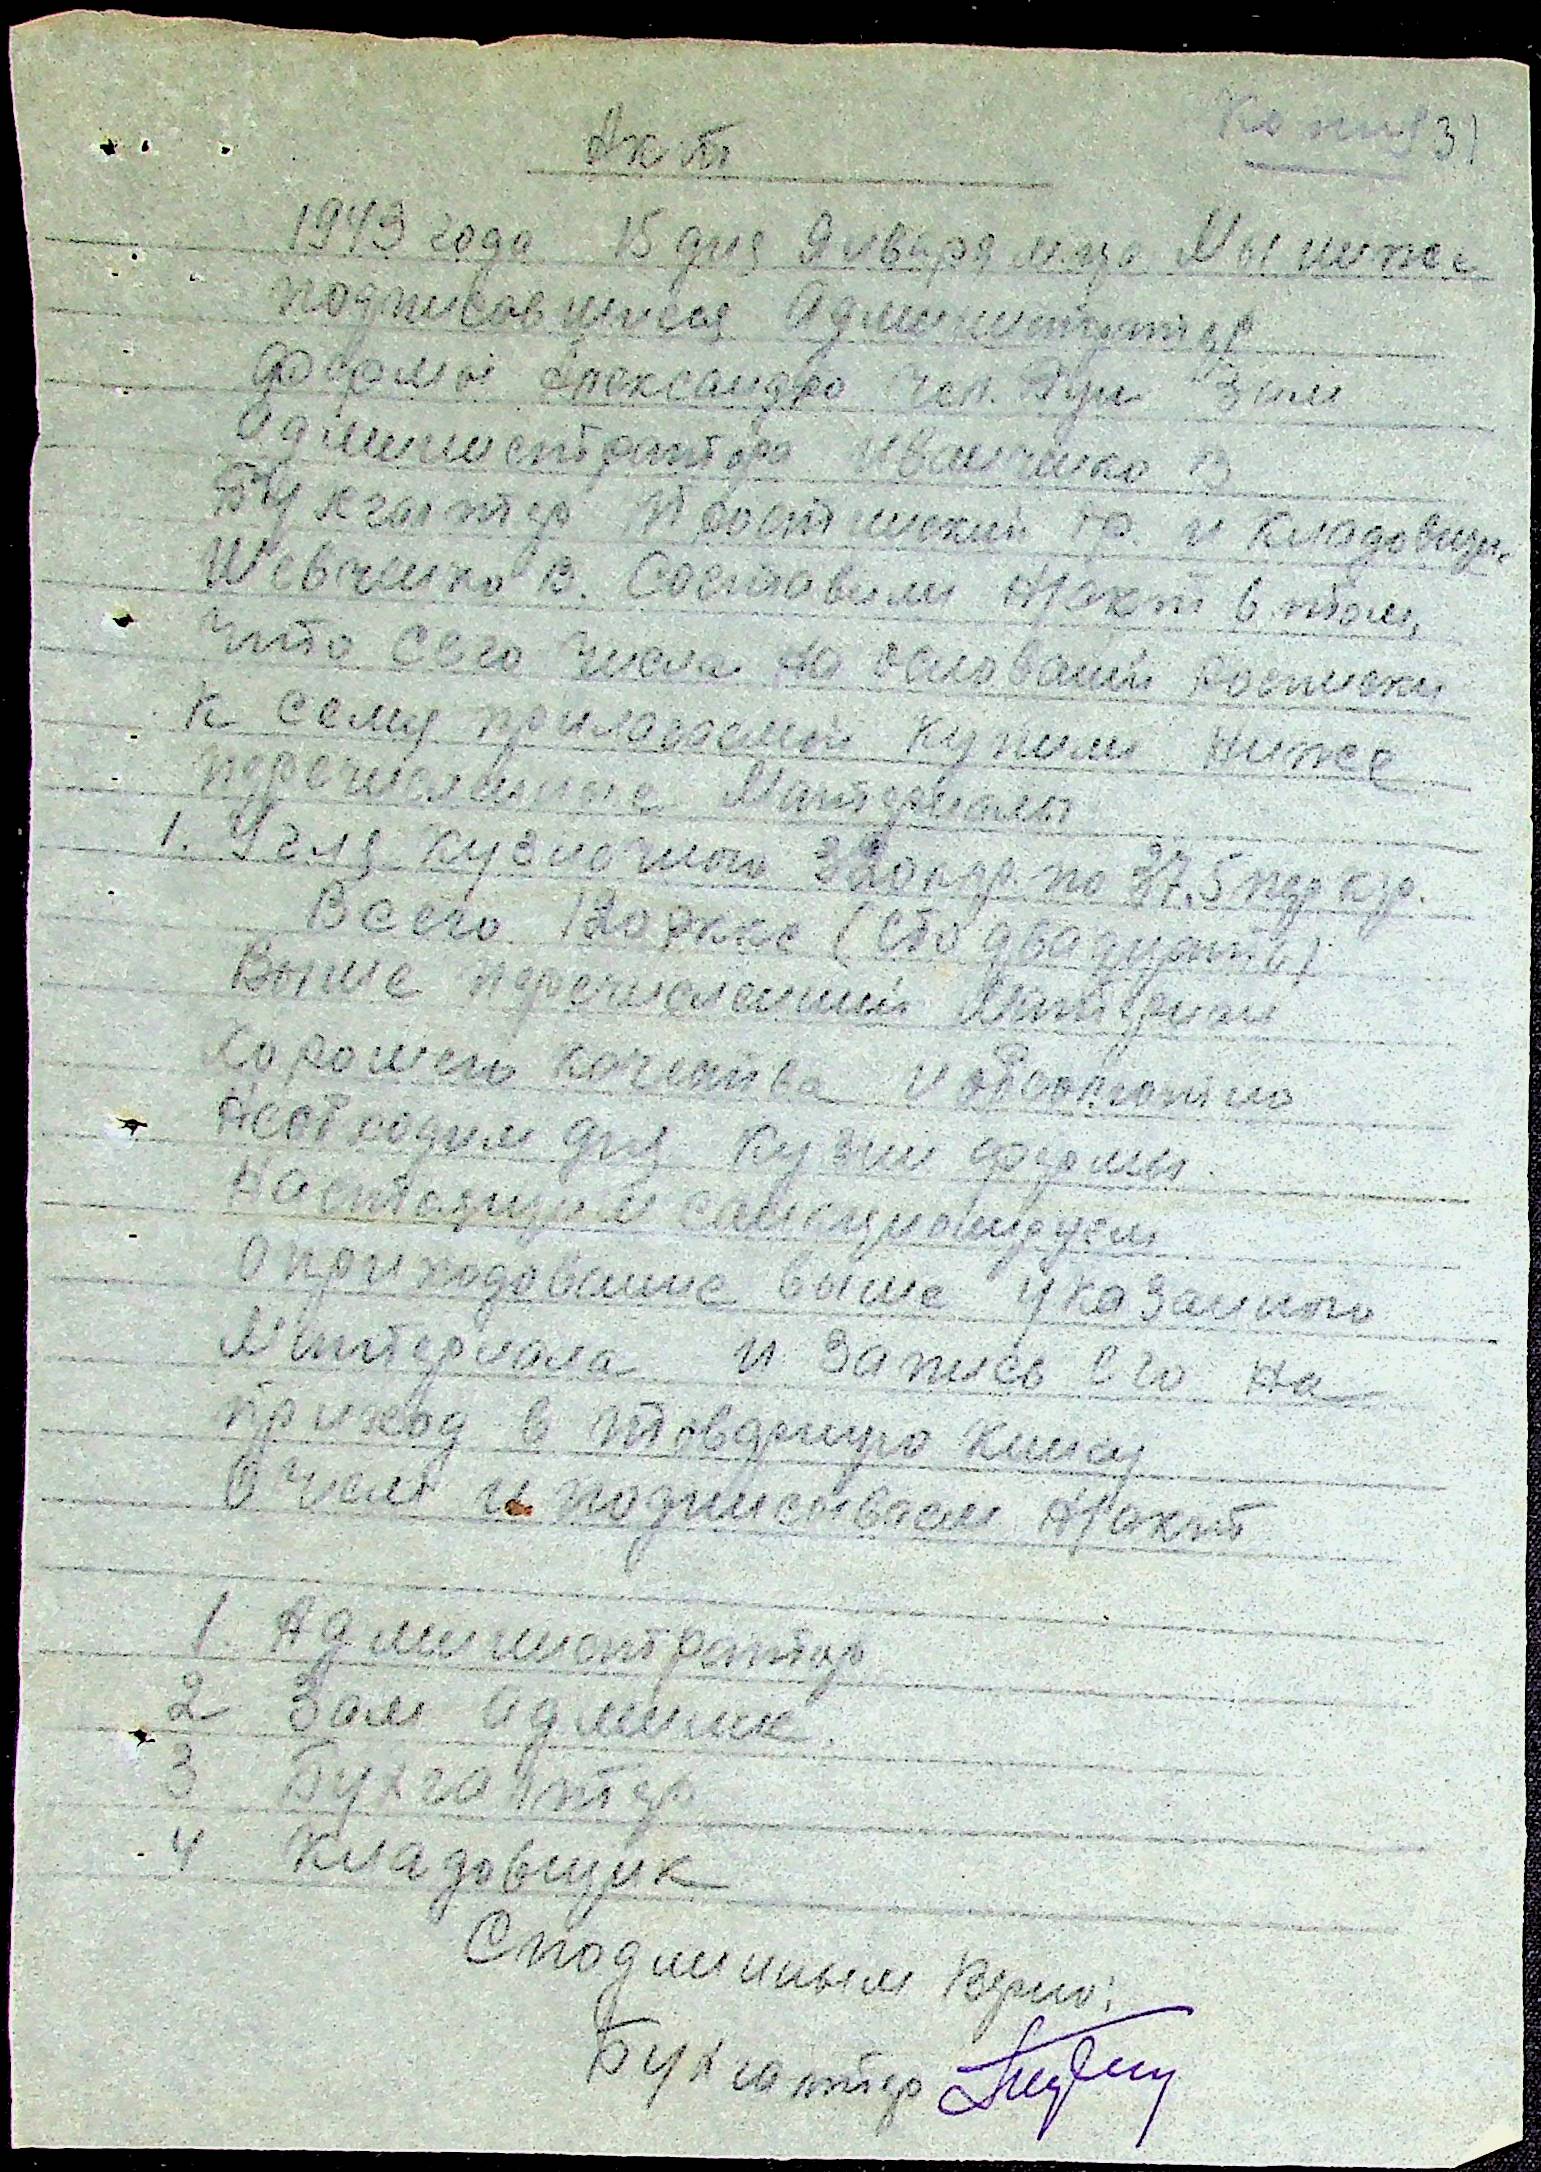 Копия 31
Акт
1943 года 15 дня Января м-ца Мы ниже
подписовшиеся Администратор
фермы Александро Зам
Администратора Иванченко В
Бухгалтер гр. и Кладовщик
Шевченко В. Составили Н/акт в том,
что сего числа на основании росписки
к сему прилагаемой купили ниже
перечисленные Материалы
1. Угля кузночного 320 кгр. по 37,5 пф кгр.
Всего 120 (сто двадцать)
Выше перечисленный Материал
хорошего качества и обсолютно
Необходим для кузни фермы.
Настоящим санкционируем
оприходование выше указанного
Материала и запись его на
приход в товарную книгу
О чем и подписываем Н/акт
1. Администратор
2 Зам Админист.
3 Бухгалтер
4 Кладовщик
С подлинным Верно:
Бухгалтер